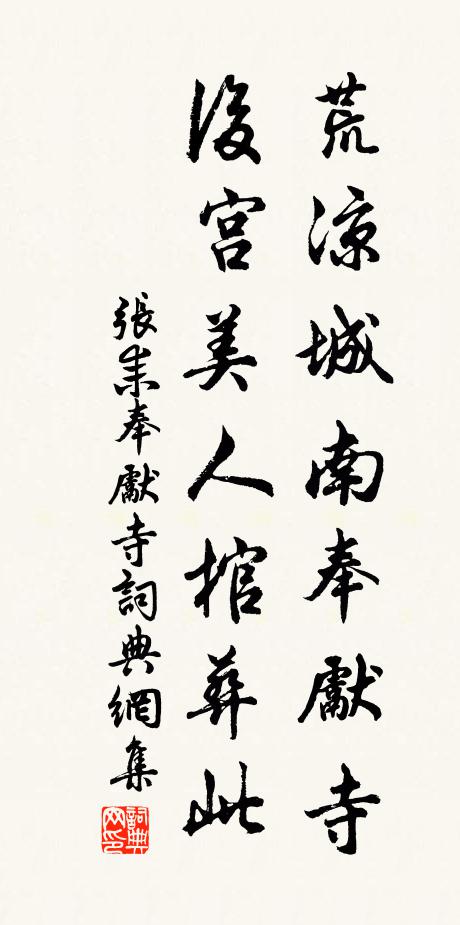 荒涼城南奉獻寺
後宮美人棺葬此
張耒奉獻寺詞典網集
詞典网印